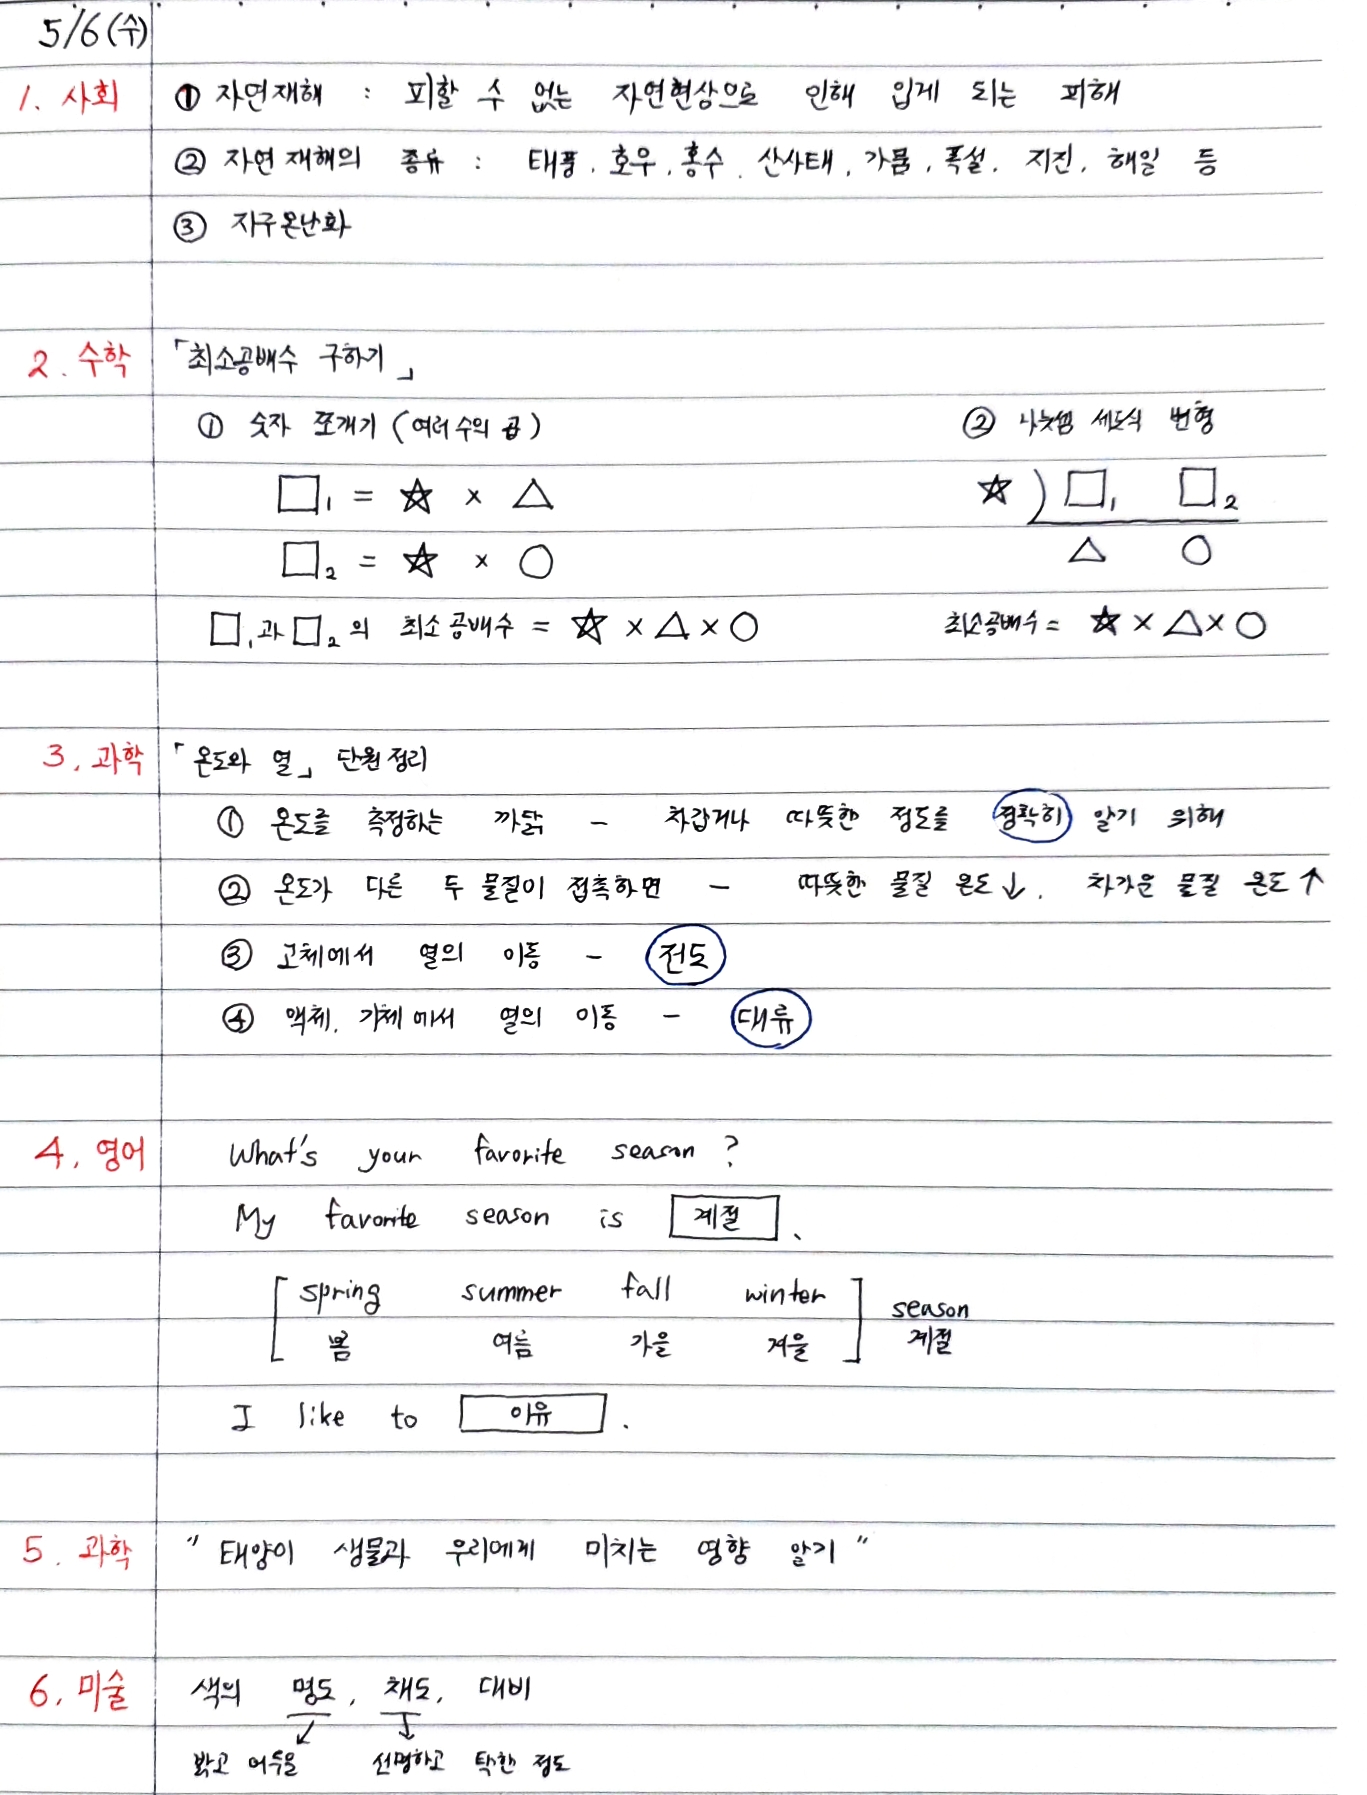 5/6(수)
1. 사회 ① 자연재해 : 피할 수 없는 자연현상으로 인해 입게 되는 피해
② 자연재해의 종류 : 태풍, 호우, 홍수, 산사태, 가뭄, 폭설, 지진, 해일 등
③ 지구온난화
2. 수학 「최소공배수 구하기」
① 숫자 쪼개기 (여러 수의 곱) ② 나눗셈 세로식 변형
□₁ = ☆ × △ ☆ ) □₁ □₂
□₂ = ☆ × ○ △ ○
□₁과 □₂의 최소공배수 = ☆ × △ × ○ 최소공배수 = ☆ × △ × ○
3. 과학 「온도와 열」 단원정리
① 온도를 측정하는 까닭 - 차갑거나 따뜻한 정도를 정확히 알기 위해
② 온도가 다른 두 물질이 접촉하면 - 따뜻한 물질 온도↓, 차가운 물질 온도↑
③ 고체에서 열의 이동 - 전도
④ 액체, 기체에서 열의 이동 - 대류
4. 영어 What's your favorite season?
My favorite season is 계절.
[ spring summer fall winter ] season
봄 여름 가을 겨울 계절
I like to 이유.
5. 과학 " 태양이 생물과 우리에게 미치는 영향 알기 "
6. 미술 색의 명도, 채도, 대비
↙ ↓
밝고 어두움 선명하고 탁한 정도